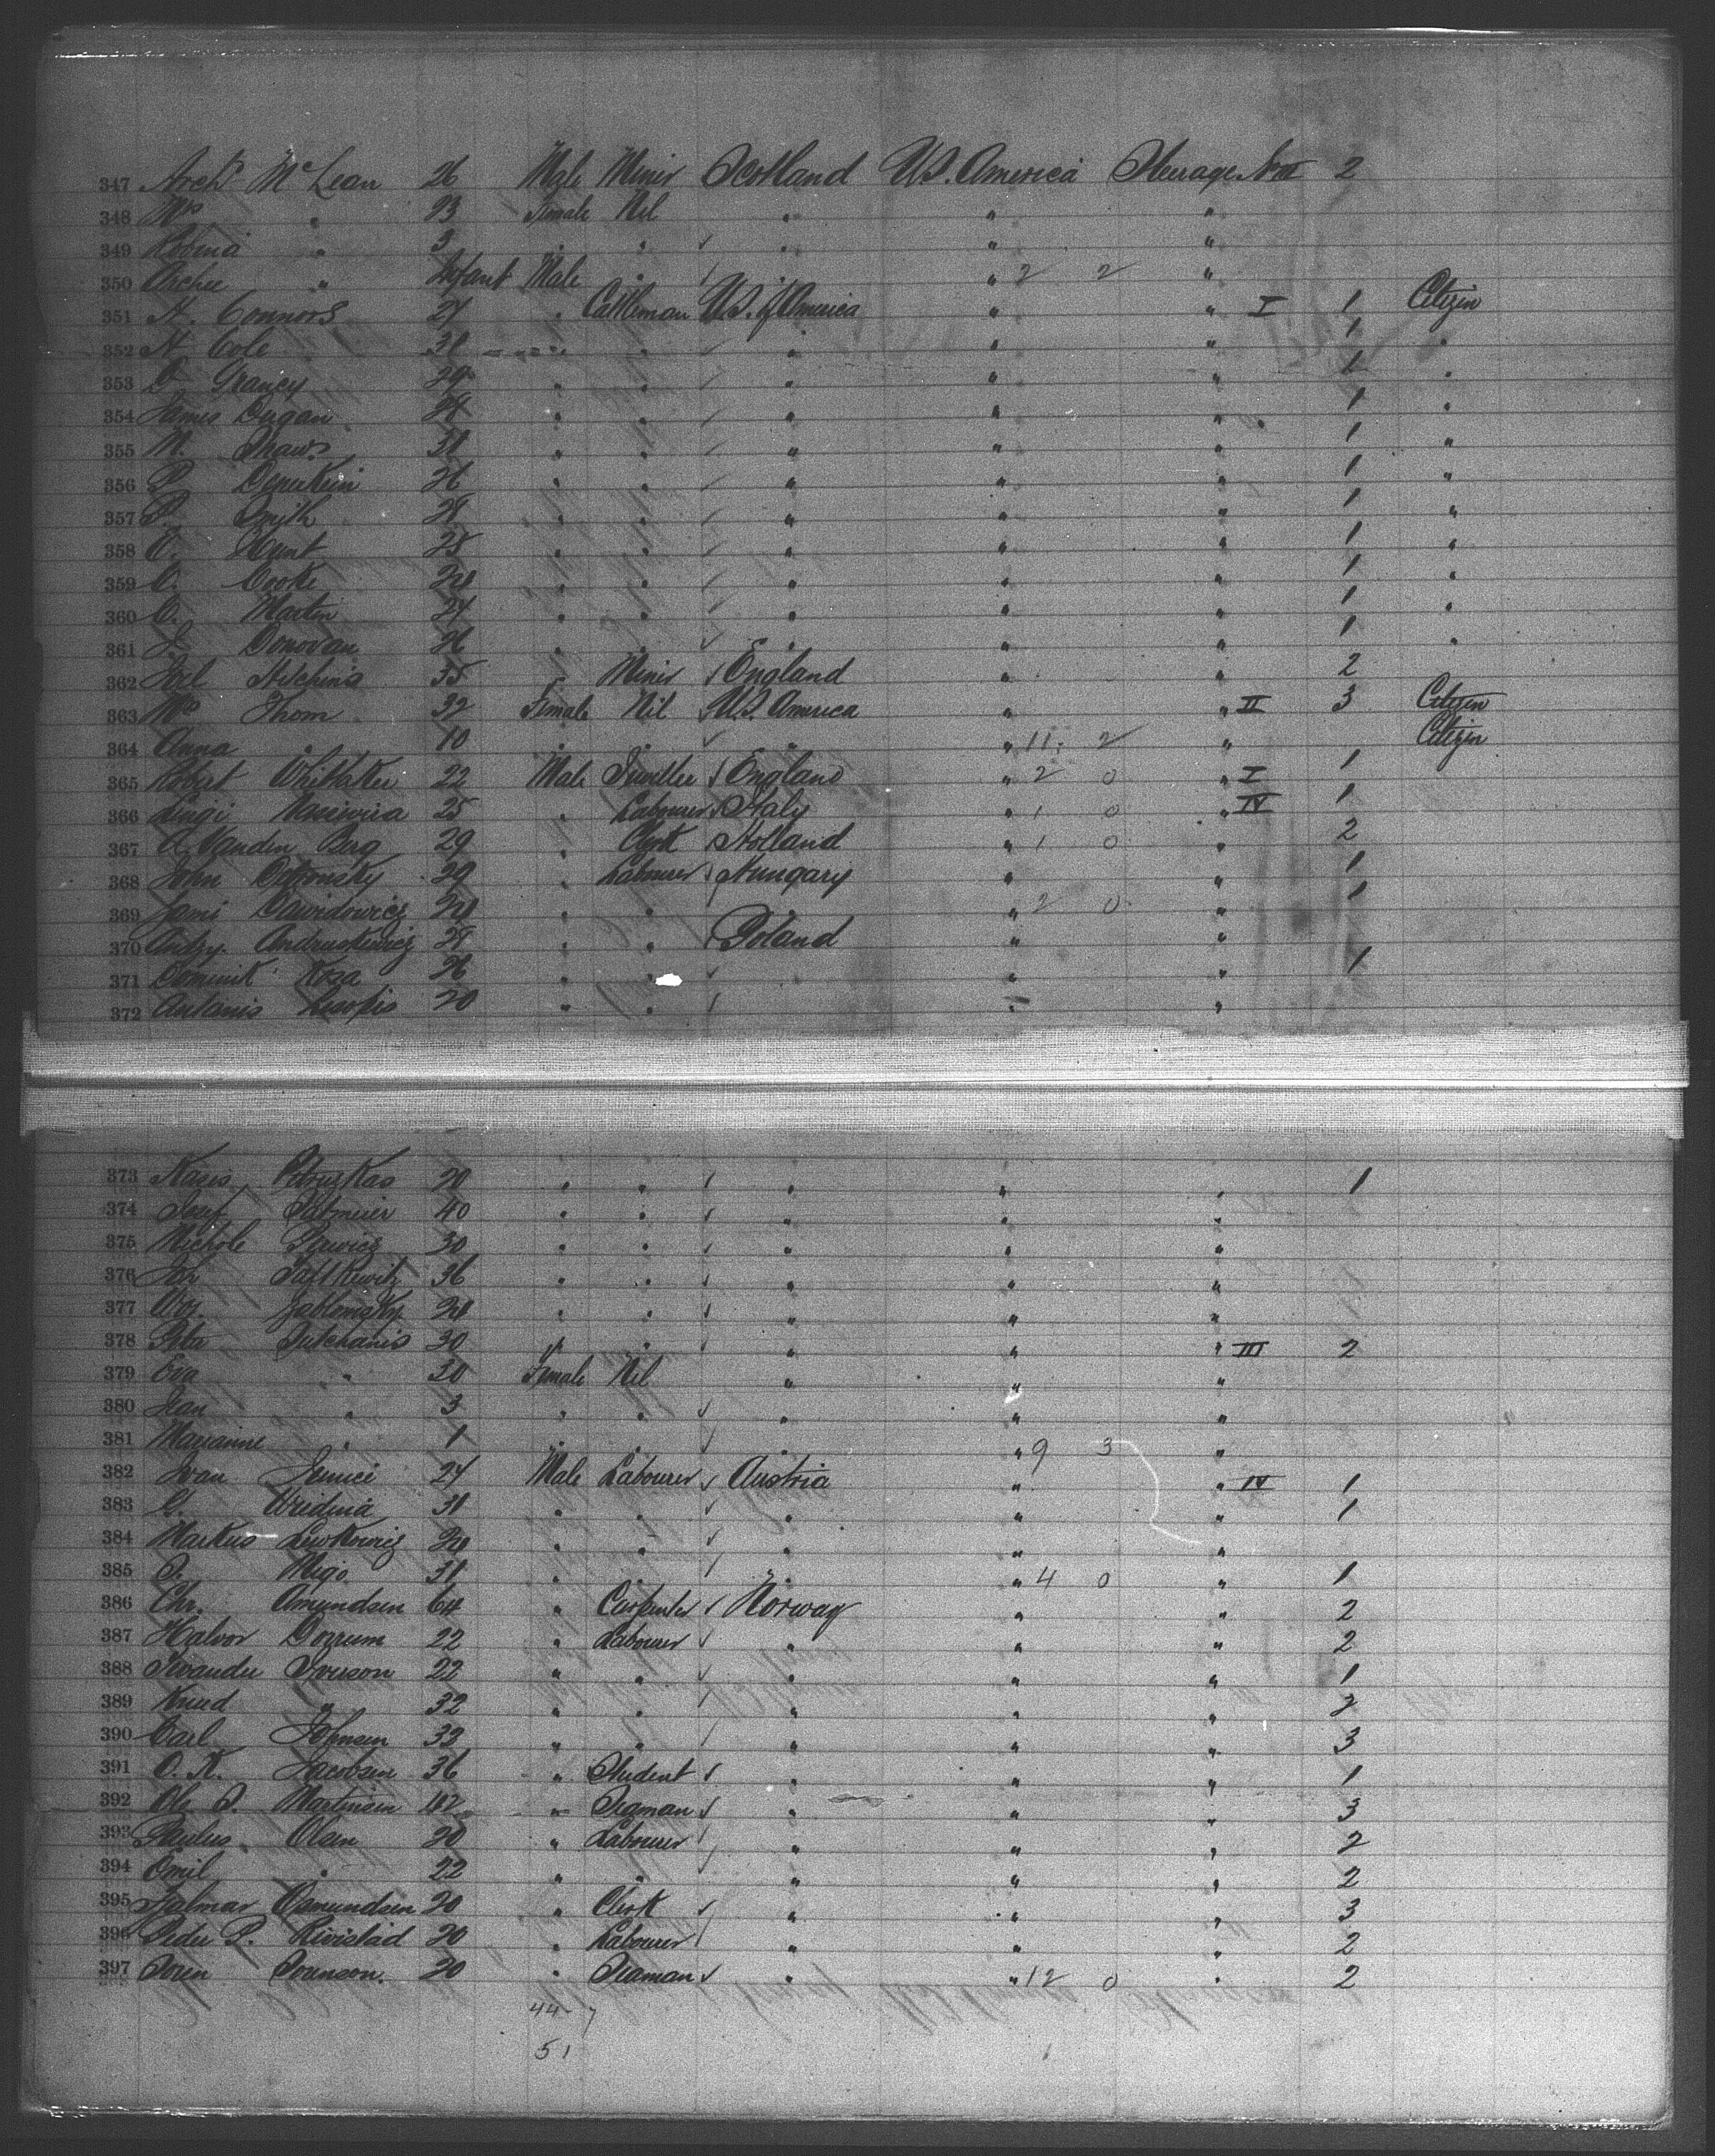 347 Archd McLean 26 Male Miner Scotland U.S. America Steerage No III 2
348 Mrs " 23 Female Nil " " "
349 Robina " 3 " " " " "
350 Archie " Infant Male " " " 2 2 "
351 H. Connors 27 " Cattleman U.S. of America " " I 1 Citizen
352 H. Cole 31 " " " " " 1 "
353 D. Grancy 29 " " " " " 1 "
354 James Dugan " " " " " 1 "
355 M. Shaw 31 " " " " " 1 "
356 P. 26 " " " " " 1 "
357 P. Smith 28 " " " " " 1 "
358 E. Hunt 25 " " " " " 1 "
359 C. Cooke " " " " " 1 "
360 C. Martin 27 " " " " " 1 "
361 J. Donovan 26 " " " " " 1 "
362 Joel Hitchins 35 " Miner England " " 2
363 Mrs Thom 32 Female Nil U.S. America " " II 3 Citizen
364 Anna " 10 " " " " 11 2 " Citizen
365 Robert Whittaker 22 Male Traveller England " 2 0 " I 1
366 25 " Labourer Italy " 1 0 " IV 1
367 A. Vanden Berg 29 " Clerk Holland " 1 0 " 2
368 John 29 " Labourer Hungary " " 1
369 Dawidowicz " " " " 2 0 " 1
370 Andruskiewicz 28 " " Poland " "
371 Dominik Kosa 26 " " " " " 1
372 Antanis 20 " " " "
373 Kazis Petruskas 20 " " " " " 1
374 Josef 40 " " " " "
375 Michole 30 " " " " "
376 36 " " " " "
377 Jablonsky " " " " "
378 Peter 30 " " " " " III 2
379 Eva " 30 Female Nil " " "
380 Jean " 3 " " " " "
381 Marianne " 1 " " " " 9 3 "
382 Ivan 27 Male Labourer Austria " " IV 1
383 G. 31 " " " " " 1
384 Markus Lewkowicz " " " " "
385 Migo 31 " " " " 4 0 " 1
386 Chr. Amundsen 64 " Carpenter Norway " " 2
387 Halvor Dorrum 22 " Labourer " " " 2
388 Iverson 22 " " " " " 1
389 Knud " 32 " " " " " 2
390 Carl Johnsen 33 " " " " " 3
391 O. K. Jacobsen 36 " Student " " " 1
392 Martinsen 42 " Seaman " " " 3
393 Paulus Olsen 20 " Labourer " " " 2
394 Emil " 22 " " " " " 2
395 Hjalmar Osmundsen 20 " Clerk " " " 3
396 Peder P. 20 " Labourer " " " 2
397 Soren 20 " Seaman " " 12 0 " 2
44 7
51